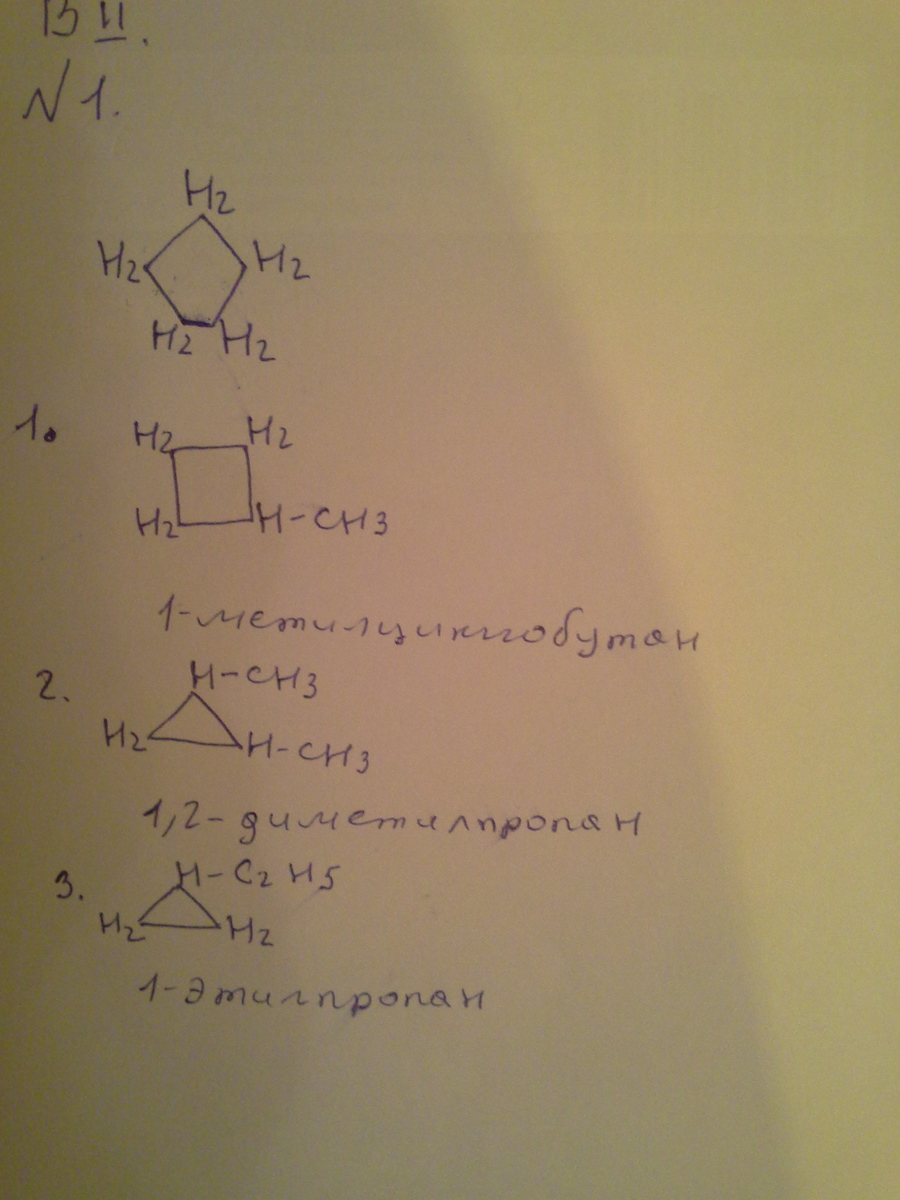 В II.
№ 1.
H2
H2 H2
H2 H2
1. H2 H2
H2 H-CH3
1-метилциклобутан
2. H-CH3
H2 H-CH3
1,2-диметилпропан
3. H-C2H5
H2 H2
1-этилпропан